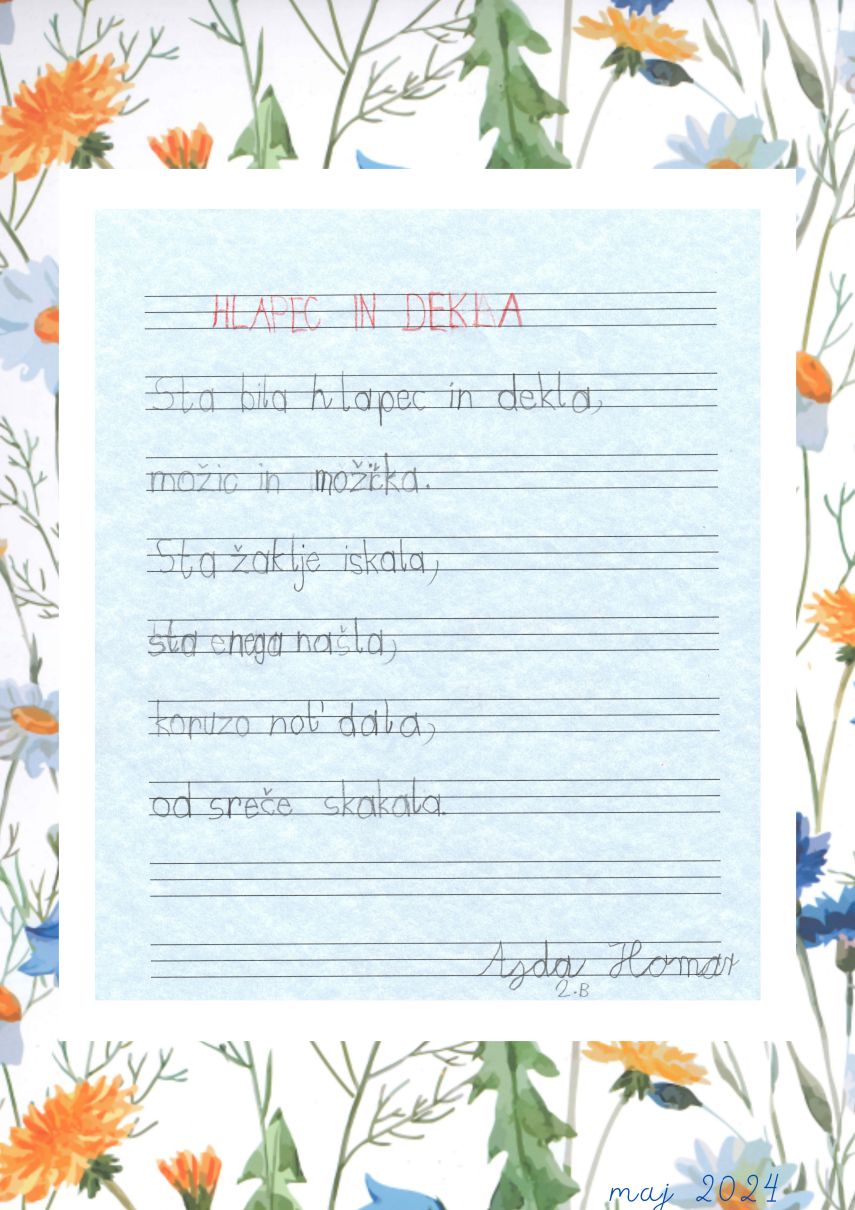 HLAPEC IN DEKLA
Sta bila hlapec in dekla,
možic in možička.
Sta žaklje iskala,
sta enega našla,
koruzo not' dala,
od sreče skakala.
Ajda Homar
2.B
maj 2024